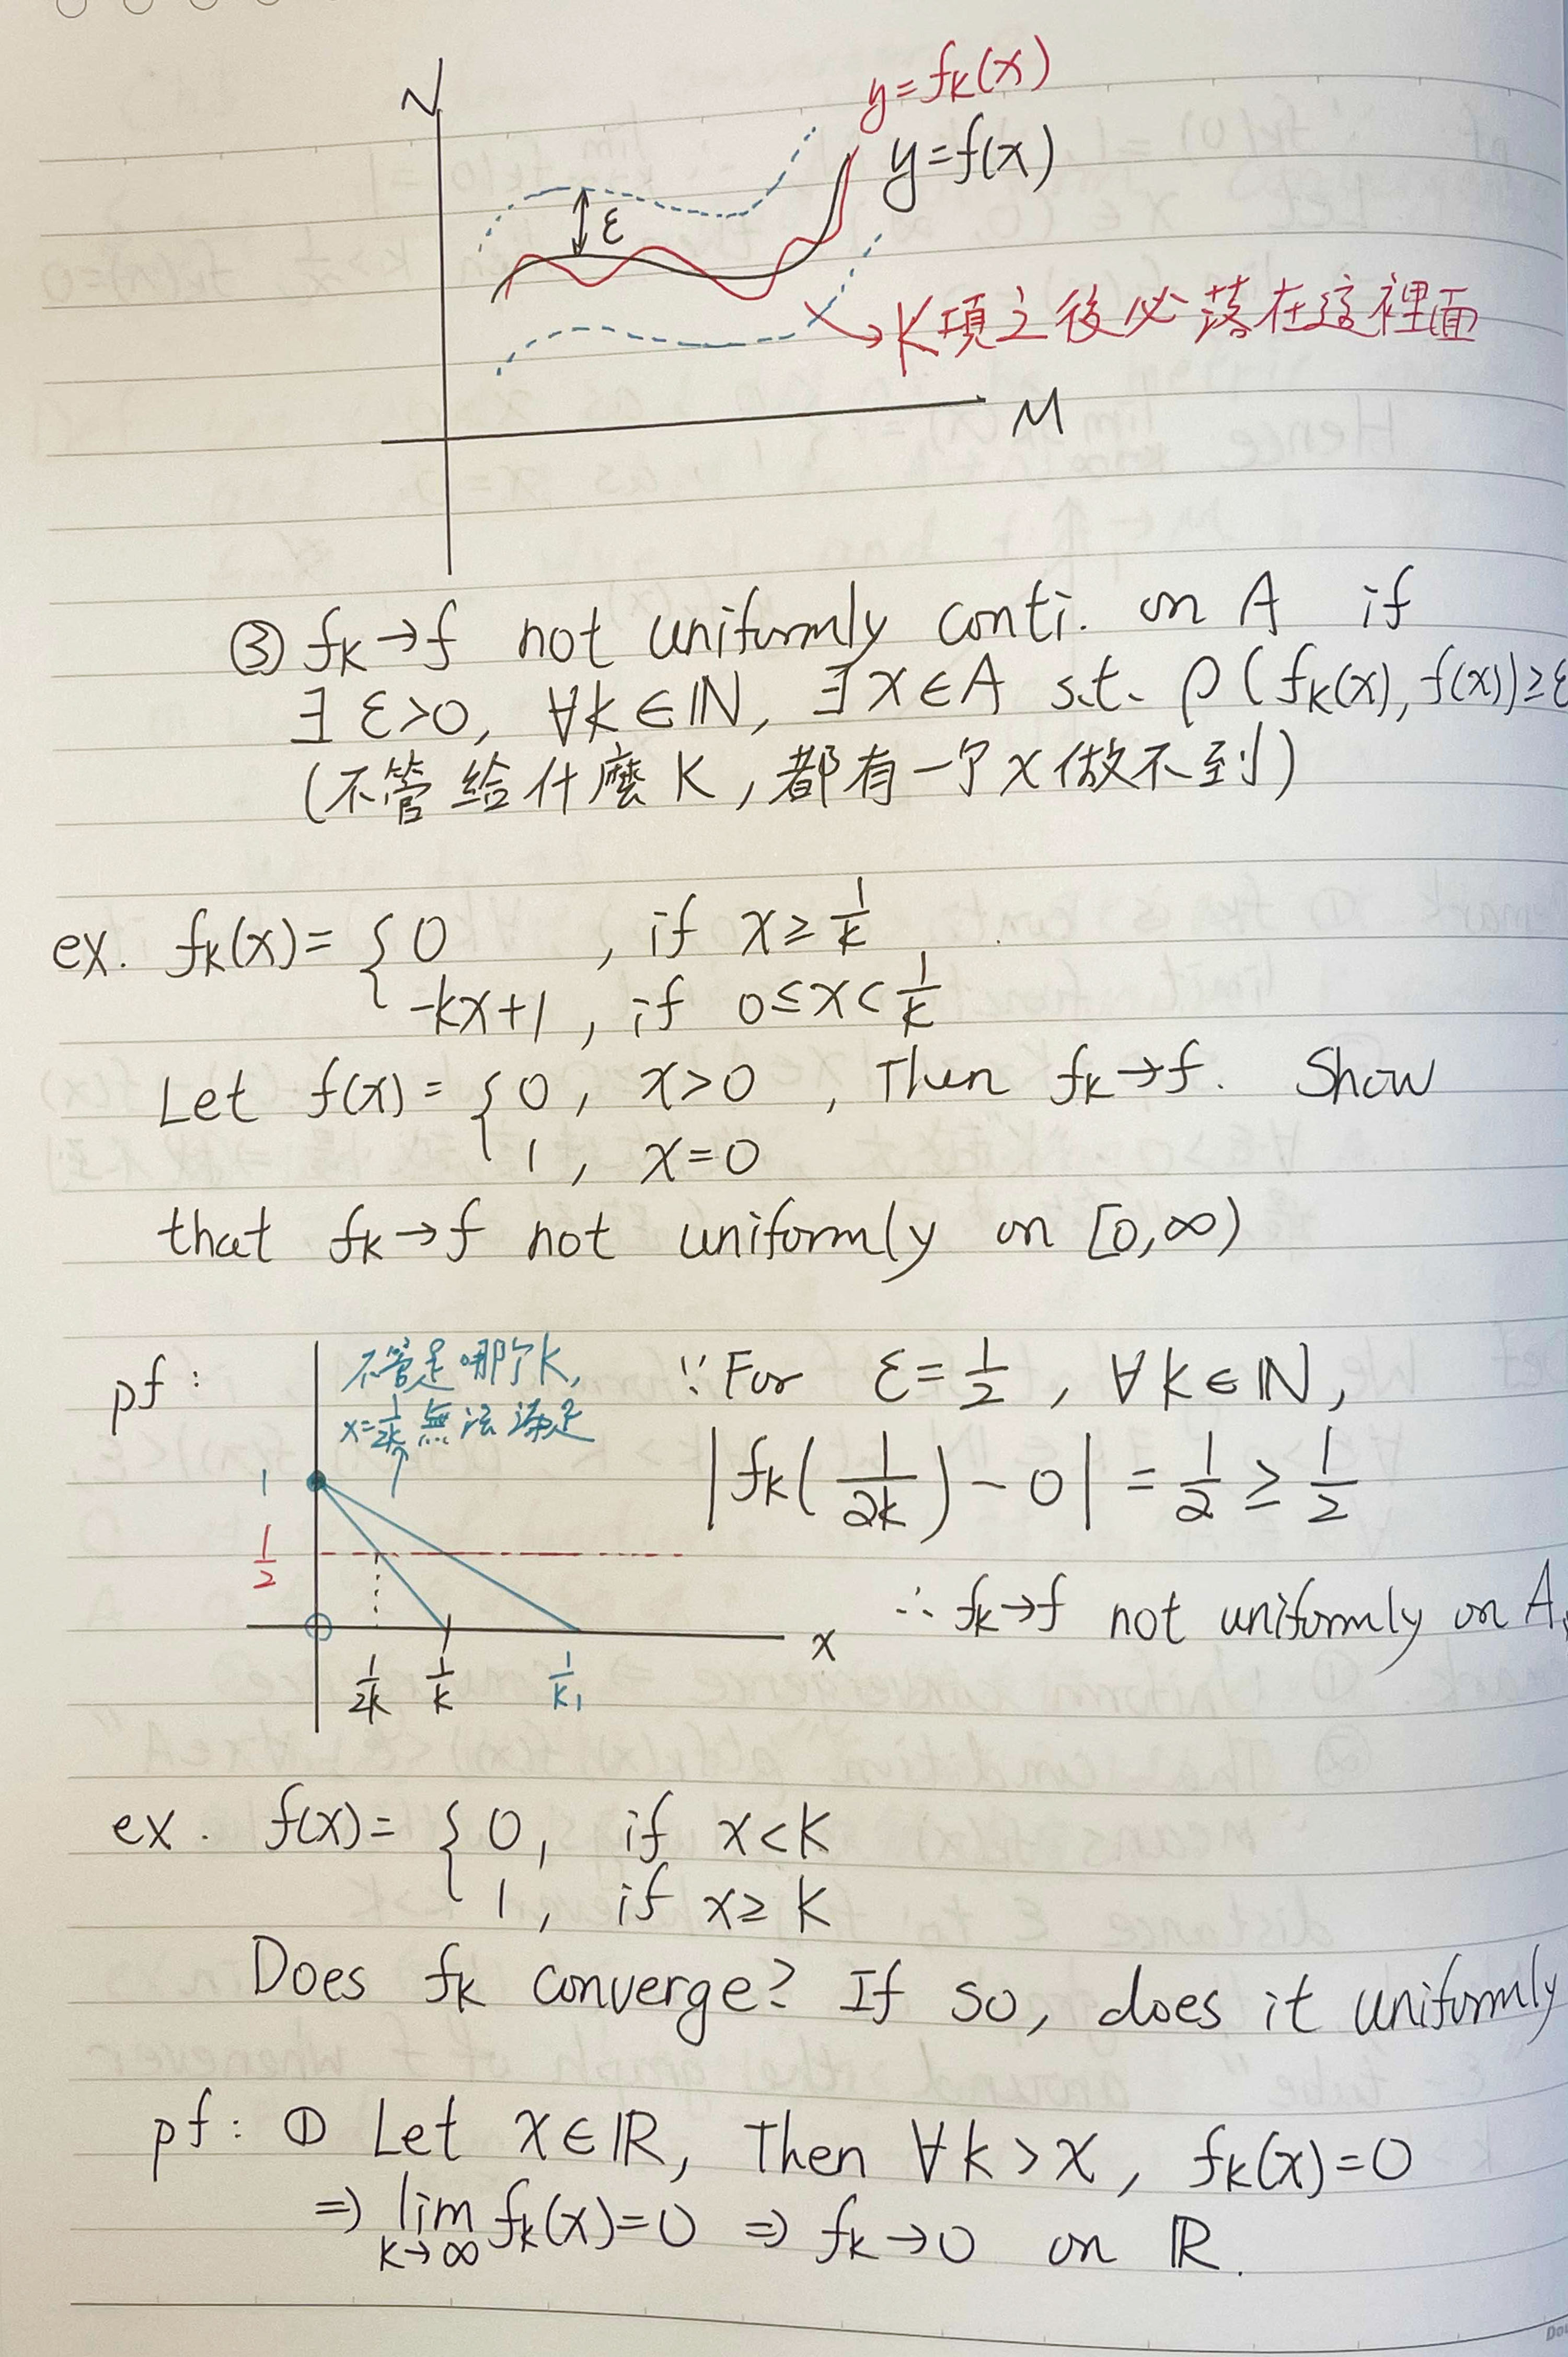 N
y=fₖ(x)
y=f(x)
ε
K項之後必落在這裡面
M
③ fₖ→f not uniformly conti. on A if
∃ ε>0, ∀k∈ℕ, ∃x∈A s.t. ρ(fₖ(x), f(x))≥ε
(不管給什麼K,都有一个x做不到)
ex. fₖ(x)= { 0 , if x≥1/k
-kx+1, if 0≤x<1/k
Let f(x)= { 0, x>0 , Then fₖ→f. Show
1, x=0
that fₖ→f not uniformly on [0,∞)
pf:
不管是哪个K,
x=1/2k 無法滿足
1
1/2
1/2k 1/k 1/k₁
x
∵ For ε=1/2, ∀k∈ℕ,
|fₖ(1/2k)-0| = 1/2 ≥ 1/2
∴ fₖ→f not uniformly on A.
ex. f(x)= { 0, if x<K
1, if x≥K
Does fₖ converge? If so, does it uniformly
pf: ① Let x∈ℝ, Then ∀k>x, fₖ(x)=0
⇒ lim k→∞ fₖ(x)=0 ⇒ fₖ→0 on ℝ.